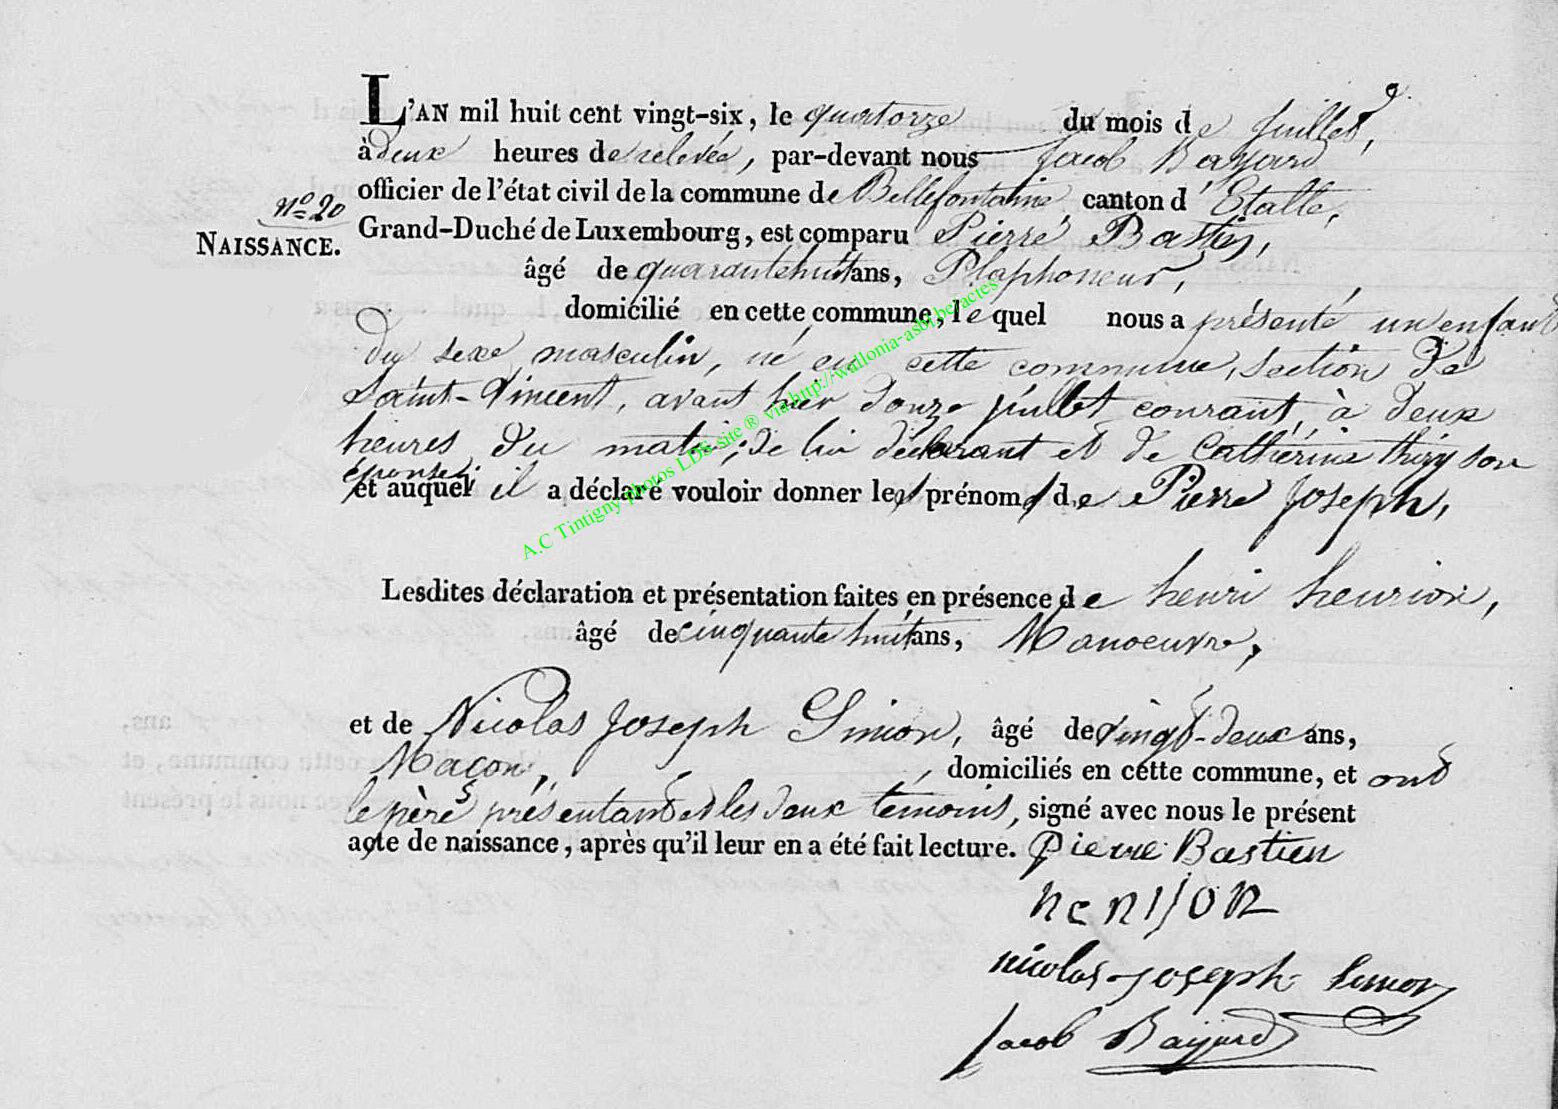 L'AN mil huit cent vingt-six, le quatorze du mois de Juillet,
à deux heures de relevée, par-devant nous Jacob Bayard
officier de l'état civil de la commune de Bellefontaine, canton d'Etalle,
Nº 20
NAISSANCE.
Grand-Duché de Luxembourg, est comparu Pierre Bastien,
âgé de quarante huit ans, Plaphoneur,
domicilié en cette commune, lequel nous a présenté un enfant
du sexe masculin, né en cette commune, section de
Saint-Vincent, avant hier douze juillet courant, à deux
heures du matin, de lui déclarant et de Catherine thiry son
épouse,
et auquel il a déclaré vouloir donner les prénoms de Pierre Joseph,
Lesdites déclaration et présentation faites en présence de henri henrion,
âgé de cinquante huit ans, Manoeuvre,
et de Nicolas Joseph Simon, âgé de vingt-deux ans,
Maçon, domiciliés en cette commune, et ont
le père présentant et les deux témoins, signé avec nous le présent
acte de naissance, après qu'il leur en a été fait lecture. Pierre Bastien
nicolas-joseph Simon
Jacob Bayard
A.C Tintigny photos LDS site ® via http://wallonia-asbl.be/actes